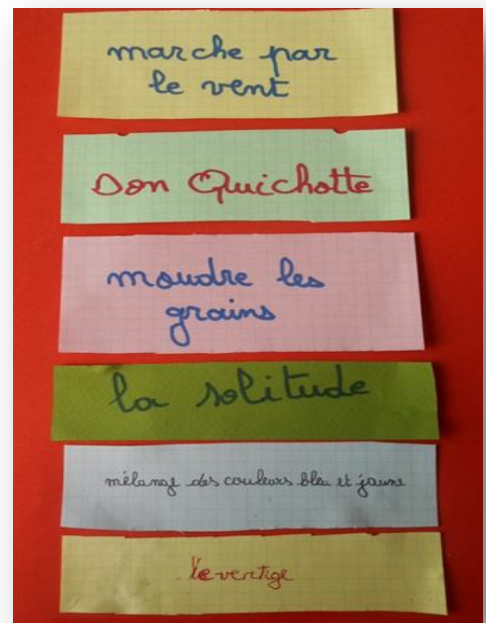 marche par
le vent
Don Quichotte
moudre les
grains
la solitude
mélange des couleurs bleu et jaune
le vertige